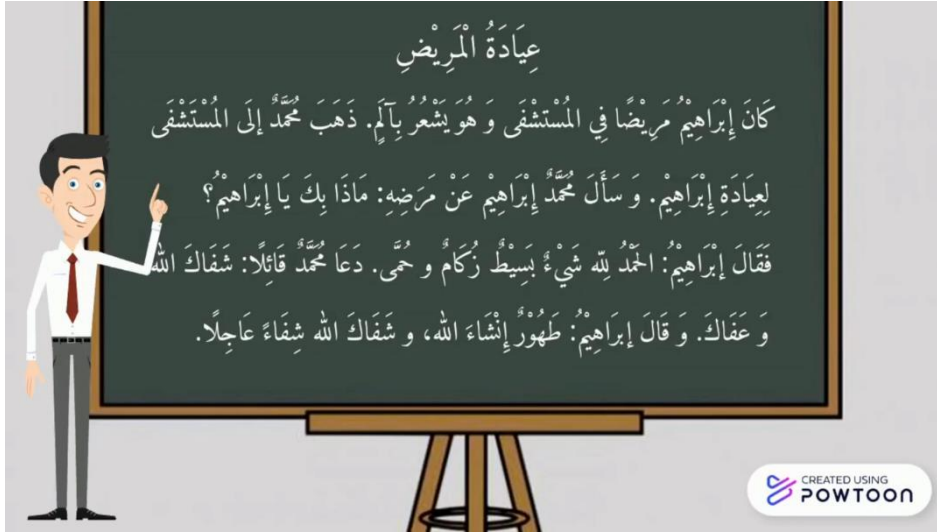 عِيَادَةُ الْمَرِيْضِ
كَانَ إِبْرَاهِيْمُ مَرِيْضًا فِي المُسْتشْفَى وَ هُوَ يَشْعُرُ بِآلَمٍ. ذَهَبَ مُحَمَّدٌ إلَى المُسْتَشْفَى
لِعِيَادَةِ إِبْرَاهِيْم. وَ سَأَلَ مُحَمَّدٌ إِبْرَاهِيْم عَنْ مَرَضِهِ: مَاذَا بِكَ يَا إِبْرَاهيْمُ؟
فَقَالَ إبْرَاهِيْمُ: الحَمْدُ لِلّه شَيْءٌ بَسِيْطٌ زُكَامٌ و حُمَّى. دَعَا مُحَمَّدٌ قَائِلًا: شَفَاكَ الله
وَ عَفَاكَ. وَ قَالَ إبرَاهِيْمُ: طَهُوْرٌ إِنْشَاءَ الله، و شَفَاكَ الله شِفَاءً عَاجِلًا.
CREATED USING
POWTOON